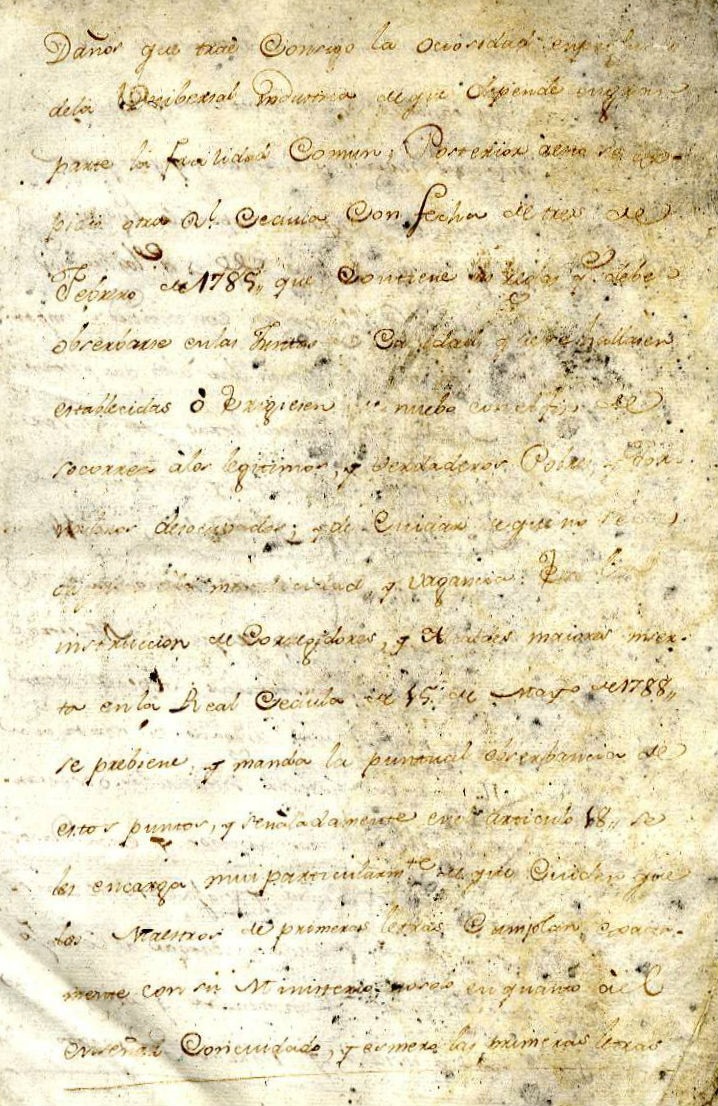 Daños que trae Consigo la ociosidad en perjuicio
dela Unibersal Industria de que depende en gran
parte la felicidad Comun, Posterior aesto se ex-
pidio otra Rl. Cedula Con fecha de tres de
Febrero de 1785,, que Contiene las reglas q.e debe
obserbarse en las Juntas de Caridad que se hallasen
establecidas ò Erigiesen de nuebo con el fin de
socorrer àlos legitimos, y verdaderos Pobres y Jor-
naleros desocupados; y de Cuidar de que no se
mendicidad, y vagancia. En la
instruccion de Corregidores, y Alcaldes maiores inser-
ta en la Real Cedula de 15. de Mayo de 1788,,
se prebiene, y manda la puntual obserbancia de
estos puntos, y señaladamente en el articulo 18,, se
les encarga mui particularm.te de que Cuiden que
los Maestros de primeras letras Cumplan exacta-
mente con su Ministerio no solo en quanto àel
enseñar Con cuidado, y esmero las primeras letras